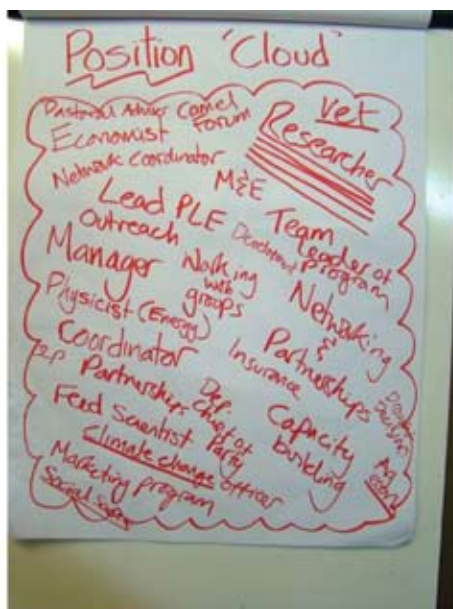 Position 'Cloud'
Pastoral Adviser Camel Forum
Vet
Economist
Researcher
Network Coordinator
M&E
Lead PLE
Team Leader of
Outreach
program
Manager
Working with groups
Networking & Partnerships
Physicist (Energy)
Coordinator
Insurance
Partnerships
Dep. Chief of Party
Capacity building
Feed Scientist
Climate change officer
Marketing program
Social